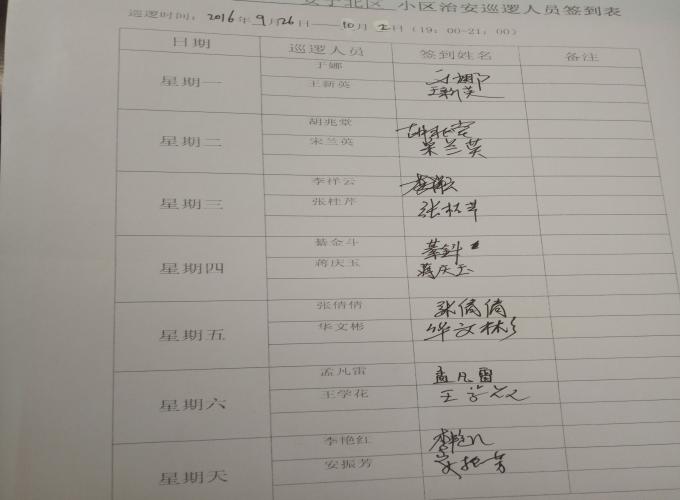 北区 小区治安巡逻人员签到表
巡逻时间：2016年9月26日——10月2日（19：00-21：00）
日期 巡逻人员 签到姓名 备注
星期一
于娜 于娜
王新英 王新英
星期二
胡兆堂 胡兆堂
宋兰英 宋兰英
星期三
李祥云
张桂芹 张桂芹
星期四
綦金斗 綦金斗
蒋庆玉 蒋庆玉
星期五
张倩倩 张倩倩
华文彬 华文彬
星期六
孟凡雷 孟凡雷
王学花 王学花
星期天
李艳红 李艳红
安振芳 安振芳